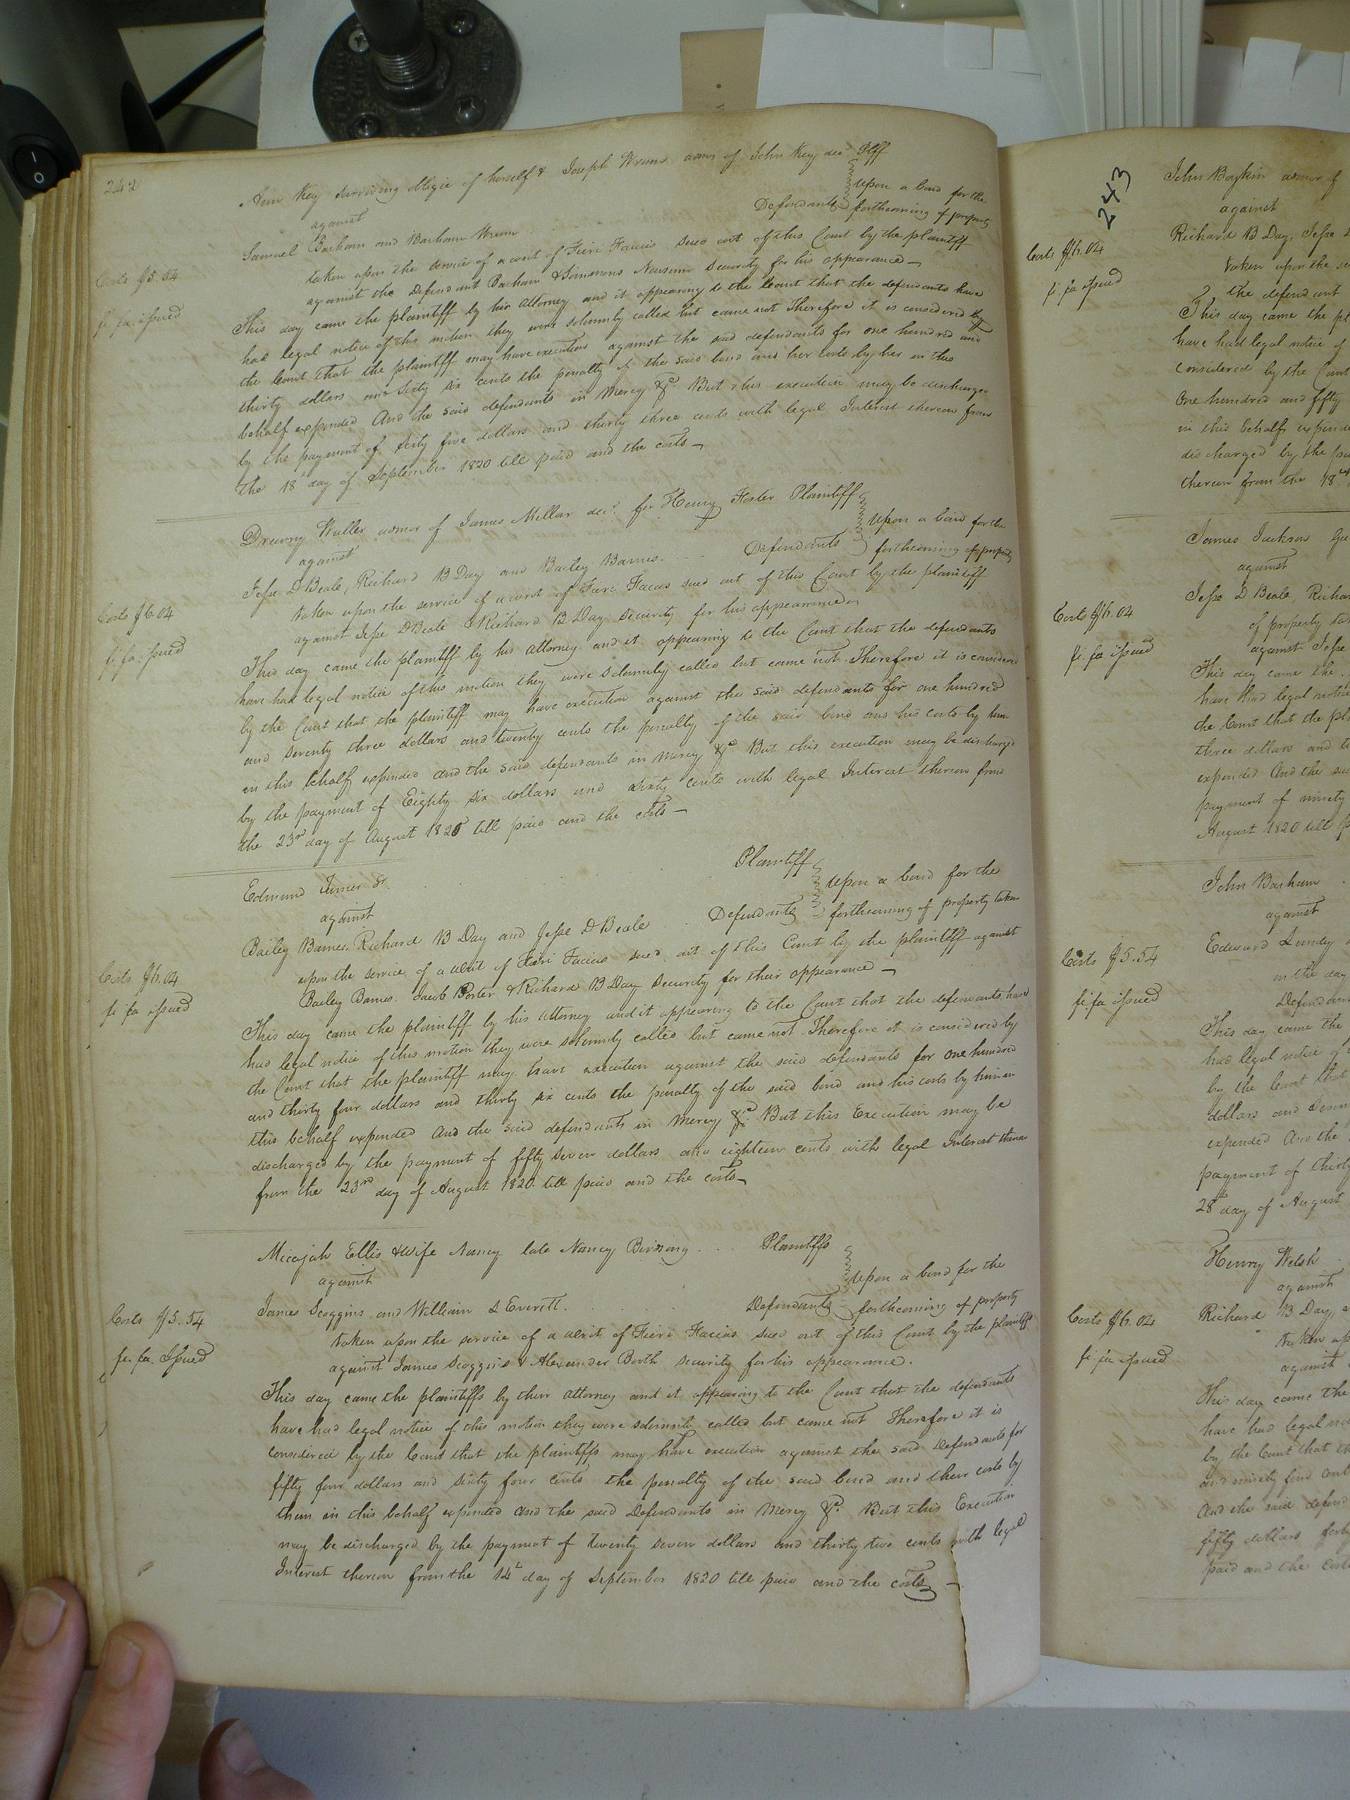 242
Ann Key surviving obligee of herself & Joseph Wrenn admr of John Key decd Plff
against
upon a bond for the
Samuel Barham and Barham Wrenn
Defendants
forthcoming of property
Costs $5.54
fi. fa. issued
taken upon the service of a writ of Fieri Facias sued out of this Court by the plaintiff
against the Defendant Barham & Simmons Newsum Security for his appearance
This day came the plaintiff by her Attorney and it appearing to the Court that the defendants have
had legal notice of this motion they were solemnly called but came not Therefore it is considered by
the Court that the plaintiff may have execution against the said defendants for one hundred and
thirty dollars and sixty six cents the penalty of the said bond and her costs by her in this
behalf expended And the said defendants in Mercy &c But this execution may be discharged
by the payment of sixty five dollars and thirty three cents with legal Interest thereon from
the 18th day of September 1820 till paid and the costs
Drewry Waller admor of James Millar decd for Henry Foster Plaintiff
against
upon a bond for the
Jesse D Beale, Richard B Day and Bailey Barnes. Defendants
forthcoming of property
Costs $6.04
fi. fa. issued
taken upon the service of a writ of Fieri Facias sued out of this Court by the plaintiff
against Jesse D Beale & Richard B Day security for his appearance
This day came the plaintiff by his Attorney and it appearing to the Court that the defendants
have had legal notice of this motion they were solemnly called but came not Therefore it is considered
by the Court that the plaintiff may have execution against the said defendants for one hundred
and seventy three dollars and twenty cents the penalty of the said bond and his costs by him
in this behalf expended and the said defendants in Mercy &c But this execution may be discharged
by the payment of Eighty six dollars and sixty cents with legal Interest thereon from
the 23rd day of August 1820 till paid and the costs
Edmund Turner Sr Plaintiff
against
upon a bond for the
Bailey Barnes, Richard B Day and Jesse D Beale Defendants
forthcoming of property taken
Costs $6.04
fi fa issued
upon the service of a writ of Fieri Facias sued out of this Court by the plaintiff against
Bailey Barnes Jacob Porter & Richard B Day Security for their appearance
This day came the plaintiff by his Attorney and it appearing to the Court that the defendants have
had legal notice of this motion they were solemnly called but came not Therefore it is considered by
the Court that the plaintiff may have execution against the said defendants for one hundred
and thirty four dollars and thirty six cents the penalty of the said bond and his costs by him in
this behalf expended And the said defendants in Mercy &c But this Execution may be
discharged by the payment of fifty seven dollars and eighteen cents with legal Interest thereon
from the 23rd day of August 1820 till paid and the costs
Micajah Ellis & wife Nancy late Nancy Birdsong Plaintiffs
against
upon a bond for the
James Scoggins and William L Everett. Defendants
forthcoming of property
Costs $5.54
fi. fa. Issued
taken upon the service of a writ of Fieri Facias sued out of this Court by the plaintiff
against James Scoggins & Alexander Booth security for his appearance.
This day came the plaintiffs by their attorney and it appearing to the Court that the defendants
have had legal notice of this motion they were solemnly called but came not Therefore it is
considered by the Court that the plaintiffs may have execution against the said Defendants for
fifty four dollars and sixty four cents the penalty of the said bond and their costs by
them in this behalf expended and the said Defendants in Mercy &c. But this Execution
may be discharged by the payment of twenty seven dollars and thirty two cents with legal
Interest thereon from the 14th day of September 1820 till paid and the costs
243
John Boykin admor of
against
Costs $6.04
fi. fa issued
Richard B Day, Jesse
taken upon the
the defendant
This day came the
have had legal notice of
considered by the Court
one hundred and fifty
in this behalf expended
discharged by the
thereon from the 18th
James Jackson
against
Jesse D Beale, Richard
Costs $6.04
fi. fa issued
of property
against Jesse
This day came the
have had legal notice
the Court that the
three dollars and
expended And the
payment of ninety
August 1820 till
John Barham
against
Costs $5.54
fi. fa issued
Edward Lundy
on the day
Defendant
This day came the
had legal notice of
by the Court that
dollars and
expended And the
payment of thirty
28th day of August
Henry Welsh
against
Costs $6.04
fi. fa issued
Richard B Day,
taken
against
This day came the
have had legal
by the Court that
and ninety five cents
And the said
fifty dollars
paid and the costs